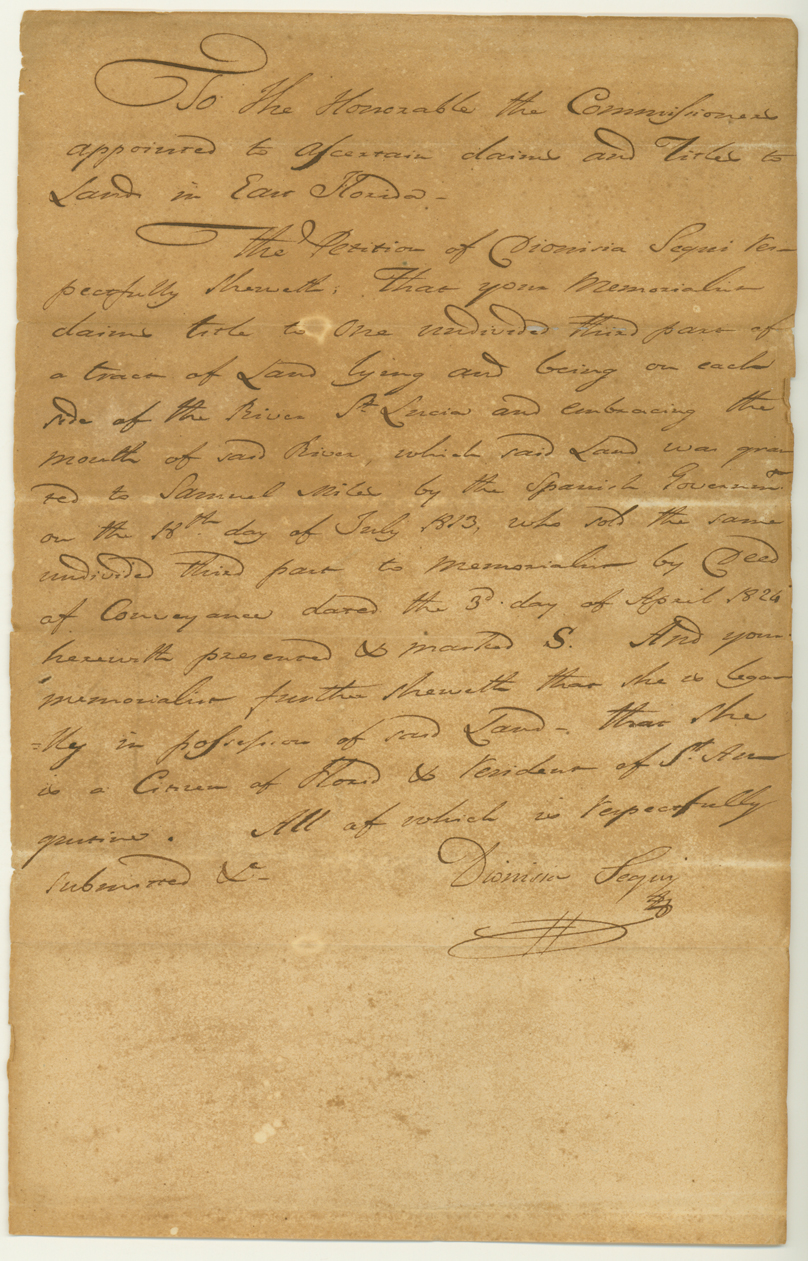 To the Honorable the Commissioners
appointed to ascertain claims and Titles to
Land in East Florida -
The Petition of Dionisia Segui res=
pectfully sheweth; That your Memorialist
claims title to One undivided third part of
a tract of Land lying and being on each
side of the River St Lucia and embracing the
mouth of said River, which said Land was gran
ted to Samuel Miles by the Spanish Governmt
on the 18th day of July 1813, who sold the same
undivided third part to memorialist by Deed
of Conveyance dated the 3d day of April 1824
herewith presented & marked S. And your
memorialist further sheweth that she is legal
=lly in possession of said Land -. that she
is a Citizen of Florid & resident of St. Au
gustine. All of which is respectfully
submitted &c-
Dionisia Segui